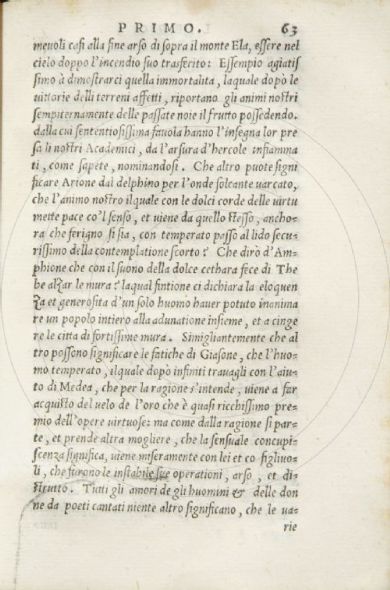 PRIMO. 63
meuoli casi alla fine arso di sopra il monte Ela, essere nel
cielo doppo l'incendio suo trasferito: Essempio agiatis
simo à dimostrarci quella immortalita, laquale dopò le
uittorie delli terreni affetti, riportano gli animi nostri
sempiternamente delle passate noie il frutto possedendo.
dalla cui sententiosissima fauola hanno l'insegna lor pre
sa li nostri Academici, da l'arsura d'hercole infiamma
ti, come sapete, nominandosi. Che altro puote signi
ficare Arione dal delphino per l'onde solcante uarcato,
che l'animo nostro ilquale con le dolci corde delle uirtu
mette pace co'l senso, et uiene da quello stesso, ancho-
ra che ferigno si sia, con temperato passo al lido secu-
rissimo della contemplatione scorto? Che dirò d'Am-
phione che con il suono della dolce cethara fece di The
be alzar le mura? laqual fintione ci dichiara la eloquen
za et generosita d'un solo huomo hauer potuto inanima
re un popolo intiero alla adunatione insieme, et a cinge
re le citta di fortissime mura. Simigliantemente che al
tro possono significare le fatiche di Giasone, che l'huo-
mo temperato, ilquale dopò infiniti trauagli con l'aiu-
to di Medea, che per la ragione s'intende, uiene a far
acquisto del uelo de l'oro che è quasi ricchissimo pre-
mio dell'opere uirtuose: ma come dalla ragione si par-
te, et prende altra mogliere, che la sensuale concupi-
scenza significa, uiene miseramente con lei et co figliuo-
li, che furono le instabile sue operationi, arso, et di-
strutto. Tutti gli amori de gli huomini & delle don
ne da poeti cantati niente altro significano, che le ua-
rie